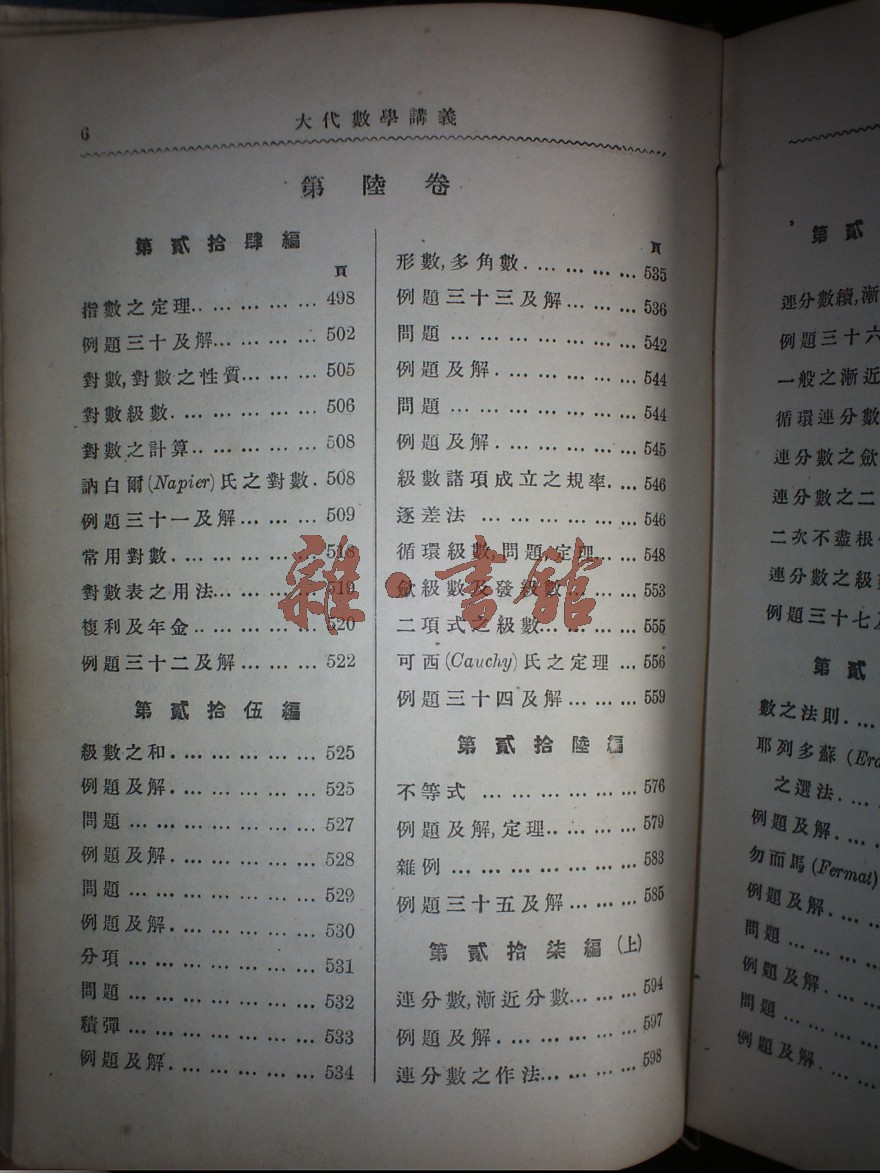 6
大代數學講義
第陸卷
第貳拾肆編
頁
指數之定理.. … … … … 498
例題三十及解… … … … 502
對數,對數之性質… … … 505
對數級數. … … … … … 506
對數之計算.. … … … … 508
訥白爾(Napier)氏之對數. 508
例題三十一及解… … … 509
常用對數. … … … … … 518
對數表之用法… … … … 519
複利及年金.. … … … … 520
例題三十二及解… … … 522
第貳拾伍編
級數之和. … … … … … 525
例題及解. … … … … … 525
問題 … … … … … … … 527
例題及解. … … … … … 528
問題 … … … … … … … 529
例題及解. … … … … … 530
分項 … … … … … … … 531
問題 … … … … … … … 532
積彈 … … … … … … … 533
例題及解. … … … … … 534
頁
形數,多角數. … … … … 535
例題三十三及解… … … 536
問題 … … … … … … … 542
例題及解. … … … … … 544
問題 … … … … … … … 544
例題及解. … … … … … 545
級數諸項成立之規率. … 546
逐差法 … … … … … … 546
循環級數,問題,定理… … 548
斂級數及發級數… … … 553
二項式之級數… … … … 555
可西(Cauchy)氏之定理 … 556
例題三十四及解… … … 559
第貳拾陸編
不等式 … … … … … … 576
例題及解,定理.. … … … 579
雜例 … … … … … … … 583
例題三十五及解… … … 585
第貳拾柒編(上)
連分數,漸近分數… … … 594
例題及解. … … … … … 597
連分數之作法… … … … 598
雜·書館
第貳
連分數續,漸
例題三十六
一般之漸近
循環連分數
連分數之斂
連分數之二
二次不盡根
連分數之級
例題三十七
第貳
數之法則. … …
耶列多蘇
之選法. … …
例題及解. … …
勿而馬(Fermat)
例題及解. … …
問題 … … …
例題及解. … …
問題 … … …
例題及解. … …